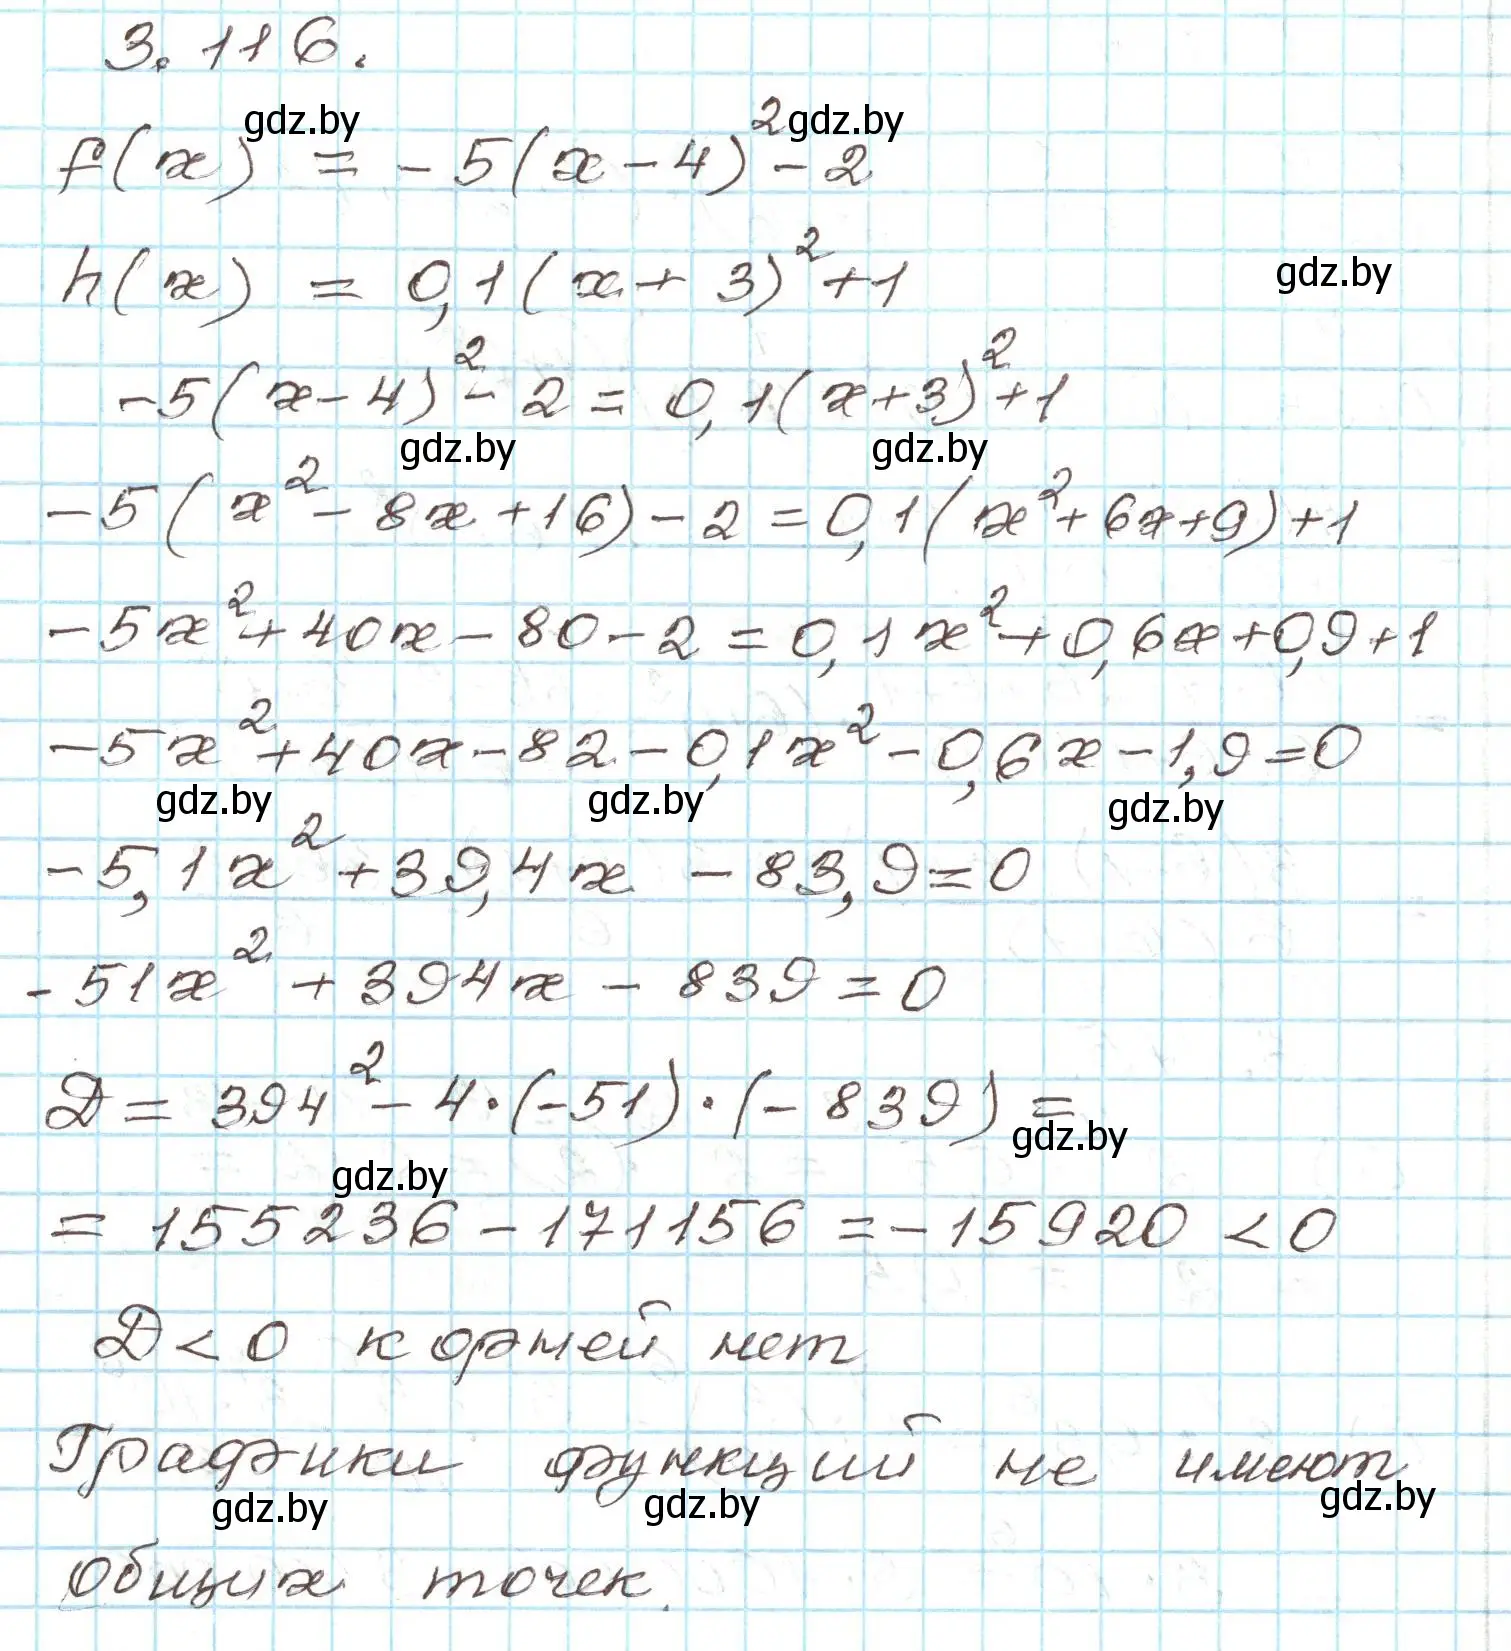 3.116.
gdz.by gdz.by
f(x) = -5(x-4)²-2
h(x) = 0,1(x+3)²+1
gdz.by
-5(x-4)²-2=0,1(x+3)²+1
gdz.by gdz.by
-5(x²-8x+16)-2=0,1(x²+6x+9)+1
-5x²+40x-80-2=0,1x²+0,6x+0,9+1
-5x²+40x-82-0,1x²-0,6x-1,9=0
gdz.by gdz.by gdz.by
-5,1x²+39,4x-83,9=0
-51x²+394x-839=0
D=394²-4·(-51)·(-839)=
gdz.by gdz.by
=155236-171156=-15920<0
D<0 корней нет
Графики функций не имеют
gdz.by gdz.by gdz.by
общих точек.